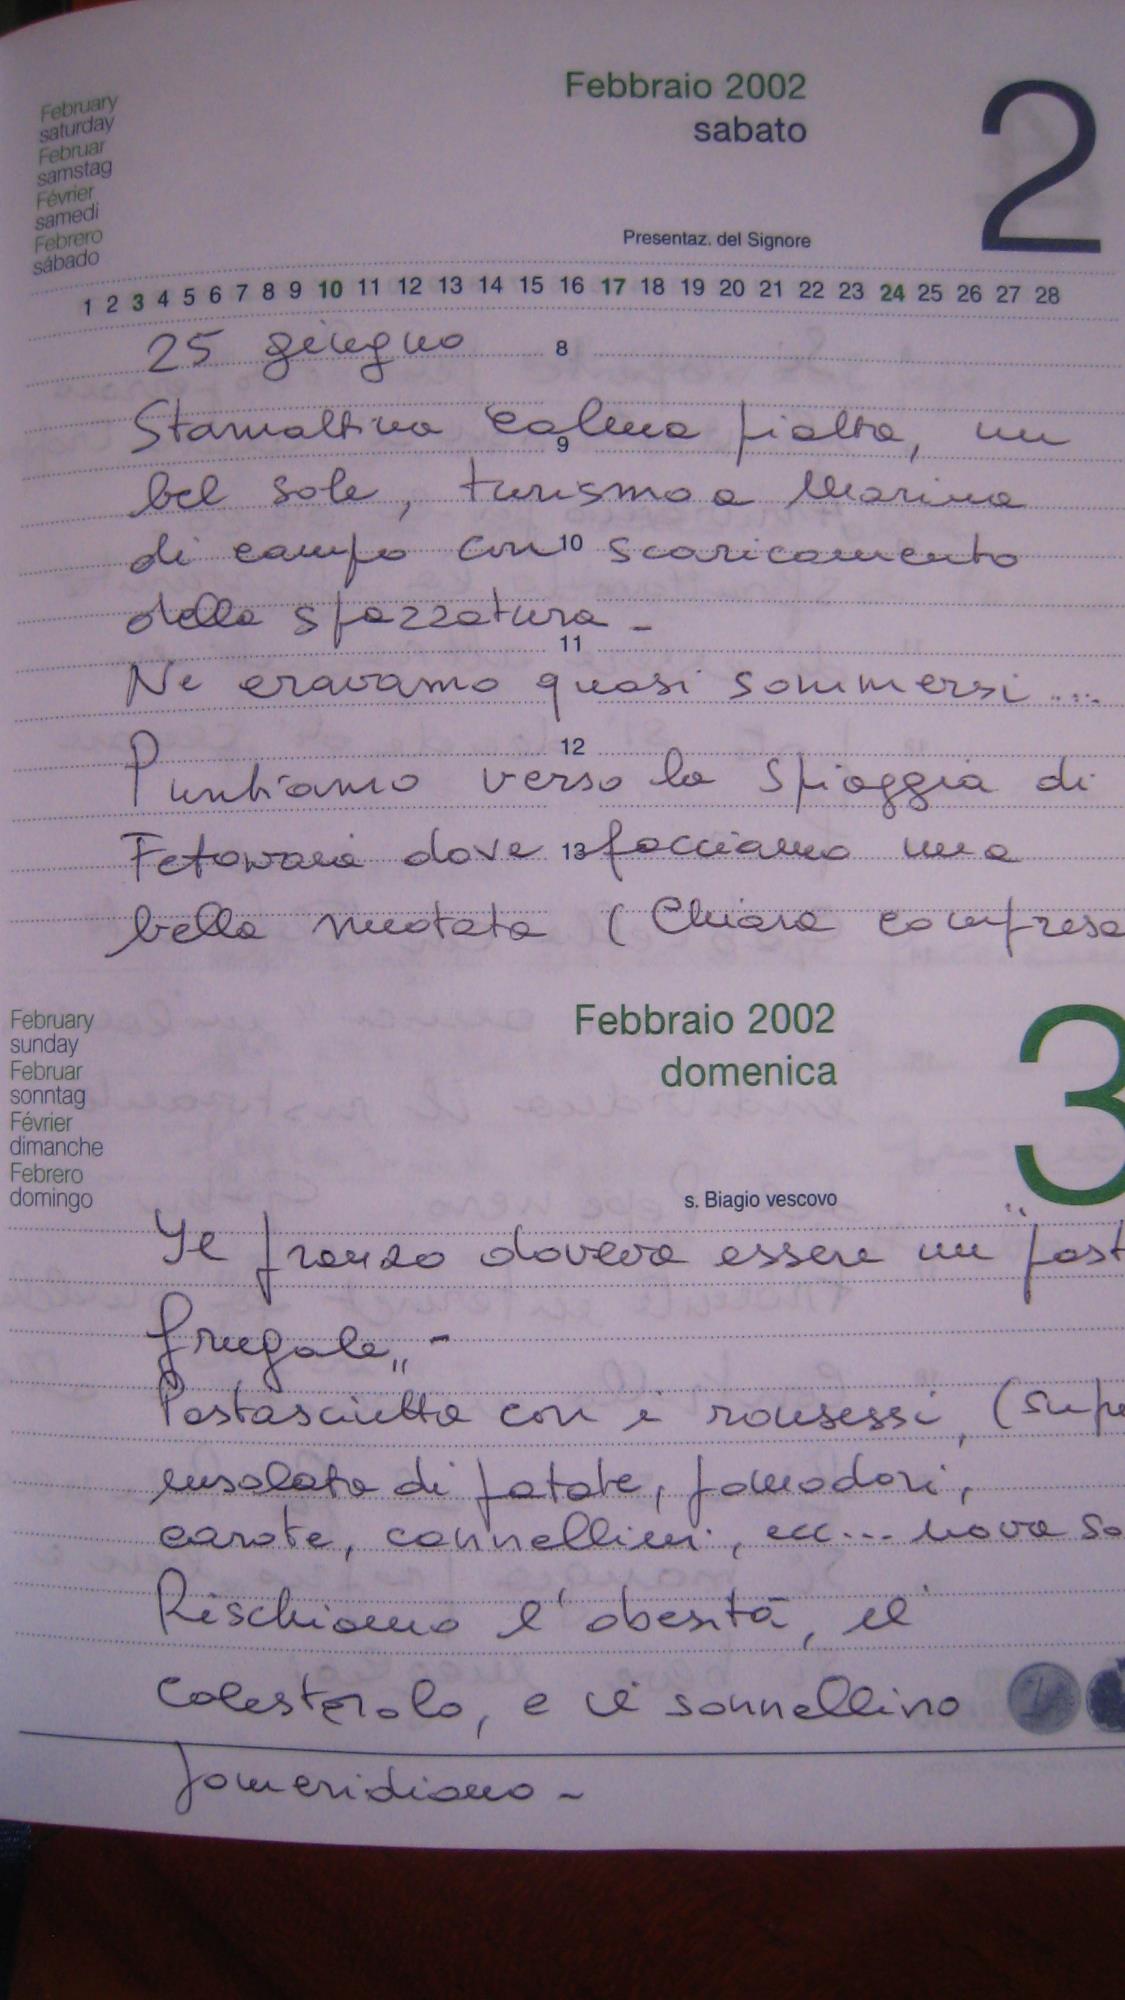 February
saturday
Februar
samstag
Février
samedi
Febrero
sábado
Febbraio 2002
sabato
2
Presentaz. del Signore
1 2 3 4 5 6 7 8 9 10 11 12 13 14 15 16 17 18 19 20 21 22 23 24 25 26 27 28
25 giugno
8
Stamattina calma piatta, un
9
bel sole, turismo a Marina
di campo con scaricamento
10
della spazzatura -
11
Ne eravamo quasi sommersi ....
12
Puntiamo verso la spiaggia di
Fetovaia dove facciamo una
13
bella nuotata ( Chiara compresa
February
sunday
Februar
sonntag
Février
dimanche
Febrero
domingo
Febbraio 2002
domenica
3
s. Biagio vescovo
Il pranzo doveva essere un "past
frugale" -
Pastasciutta con i , (supe
insalata di patate, pomodori,
carote, cannellini, ecc... uova so
Rischiamo l'obesità, il
colesterolo, e il sonnellino
pomeridiano -